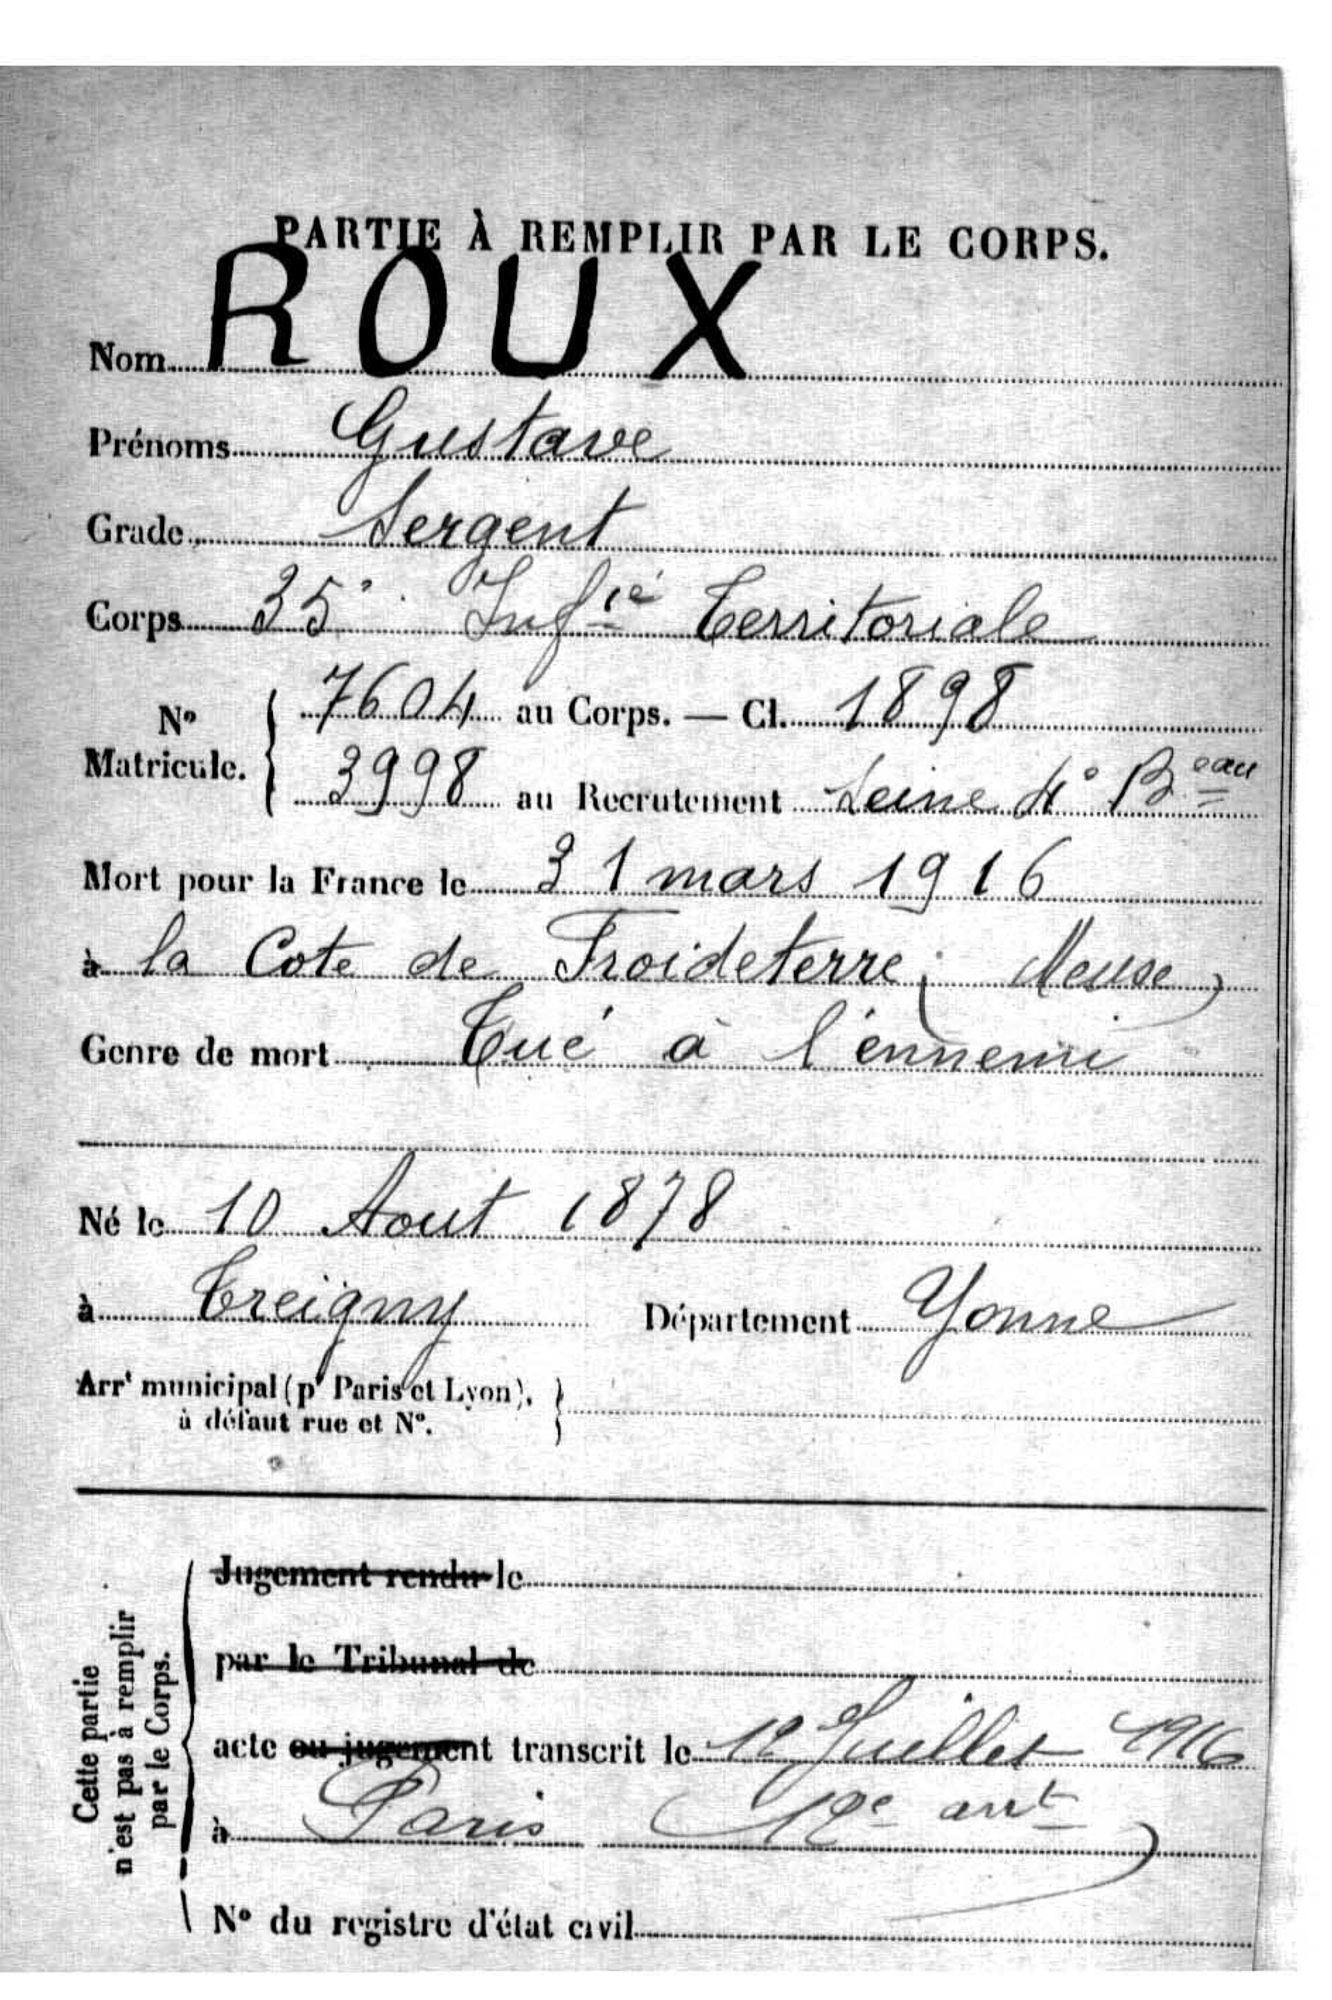 PARTIE À REMPLIR PAR LE CORPS.
Nom ROUX
Prénoms Gustave
Grade Sergent
Corps 35° Infie Territoriale
N° Matricule. { 7604 au Corps. — Cl. 1898
3998 au Recrutement Seine 4° Beau
Mort pour la France le 31 mars 1916
à la Cote de Froideterre (Meuse)
Genre de mort Tué à l'ennemi
Né le 10 Aout 1878
à Treigny Département Yonne
Arrt municipal (pr Paris et Lyon), }
à défaut rue et N°.
Cette partie
n'est pas à remplir
par le Corps.
Jugement rendu le
par le Tribunal de
acte ou jugement transcrit le 12 Juillet 1916
à Paris (12e arrt)
N° du registre d'état civil